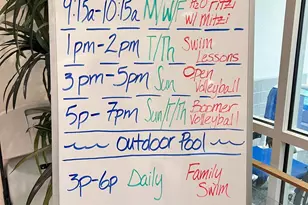 9:15a-10:15a M/W/F H2O Fitz w/ Mitzi
1pm-2pm T/Th Swim Lessons
3pm-5pm Sun Open Volleyball
5p-7pm Sun/T/Th Boomer Volleyball
~ Outdoor Pool ~
3p-6p Daily Family Swim